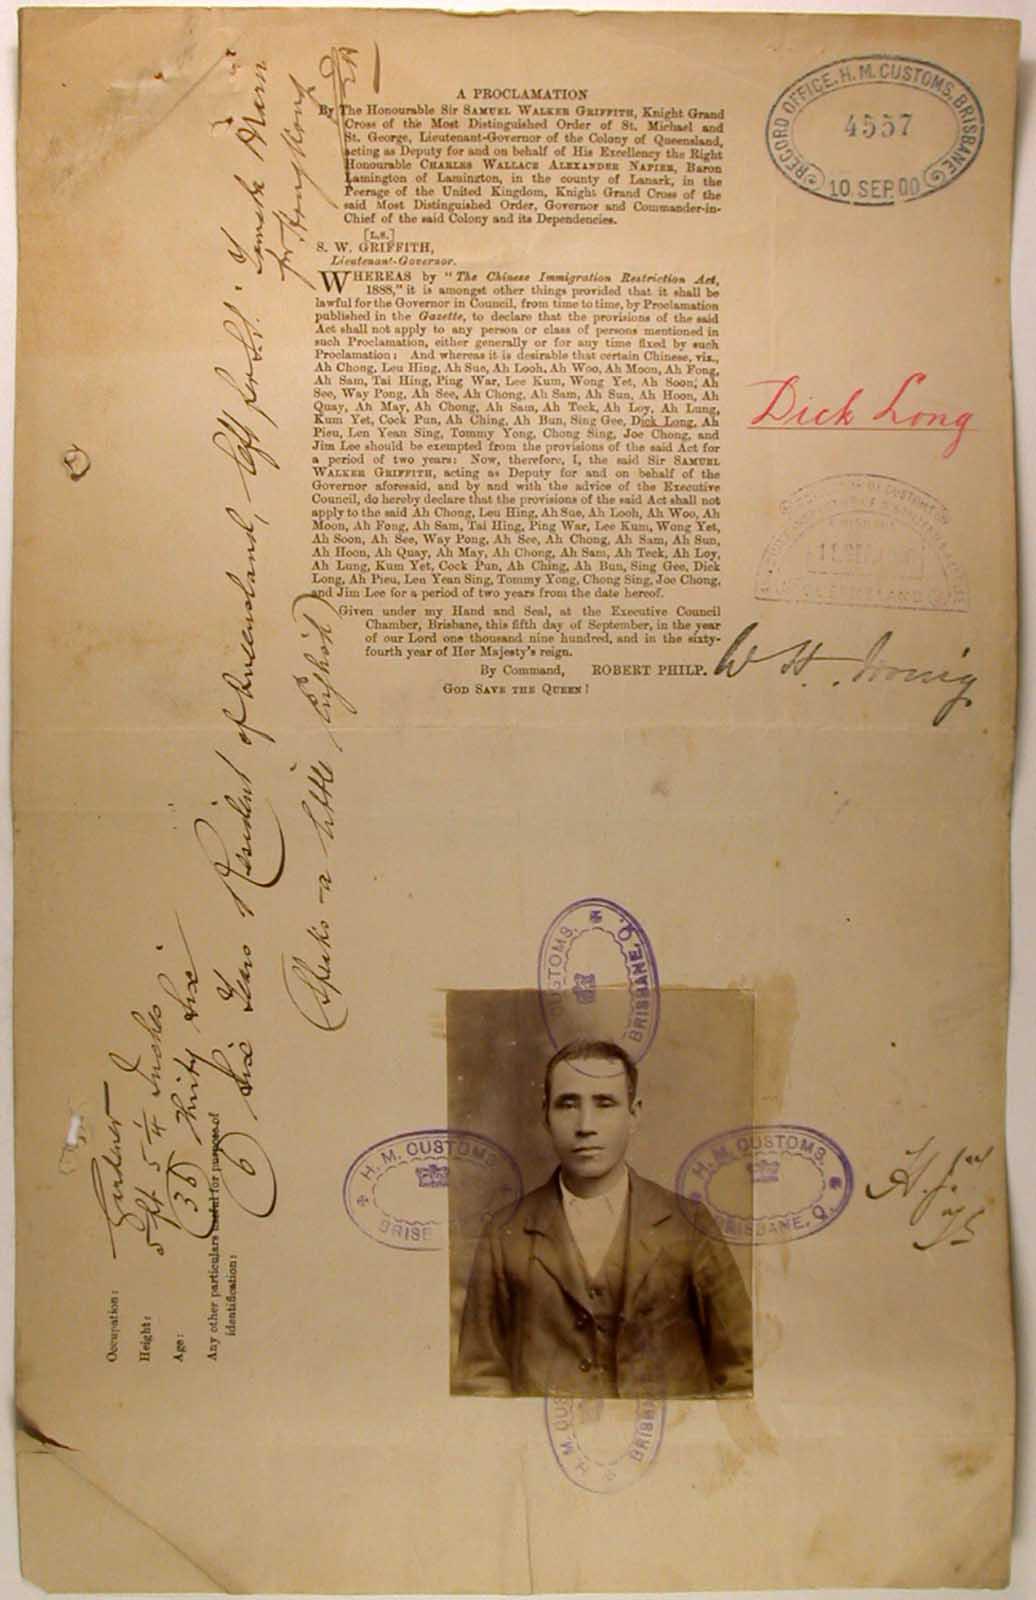 A PROCLAMATION
By The Honourable Sir SAMUEL WALKER GRIFFITH, Knight Grand
Cross of the Most Distinguished Order of St. Michael and
St. George, Lieutenant-Governor of the Colony of Queensland,
acting as Deputy for and on behalf of His Excellency the Right
Honourable CHARLES WALLACE ALEXANDER NAPIER, Baron
Lamington of Lamington, in the county of Lanark, in the
Peerage of the United Kingdom, Knight Grand Cross of the
said Most Distinguished Order, Governor and Commander-in-
Chief of the said Colony and its Dependencies.
[L.S.]
S. W. GRIFFITH,
Lieutenant-Governor.
WHEREAS by "The Chinese Immigration Restriction Act,
1888," it is amongst other things provided that it shall be
lawful for the Governor in Council, from time to time, by Proclamation
published in the Gazette, to declare that the provisions of the said
Act shall not apply to any person or class of persons mentioned in
such Proclamation, either generally or for any time fixed by such
Proclamation: And whereas it is desirable that certain Chinese, viz.,
Ah Chong, Leu Hing, Ah Sue, Ah Looh, Ah Woo, Ah Moon, Ah Fong,
Ah Sam, Tai Hing, Ping War, Lee Kum, Wong Yet, Ah Soon, Ah
See, Way Pong, Ah See, Ah Chong, Ah Sam, Ah Sun, Ah Hoon, Ah
Quay, Ah May, Ah Chong, Ah Sam, Ah Teck, Ah Loy, Ah Lung,
Kum Yet, Cock Pun, Ah Ching, Ah Bun, Sing Gee, Dick Long, Ah
Pieu, Len Yean Sing, Tommy Yong, Chong Sing, Joe Chong, and
Jim Lee should be exempted from the provisions of the said Act for
a period of two years: Now, therefore, I, the said Sir SAMUEL
WALKER GRIFFITH, acting as Deputy for and on behalf of the
Governor aforesaid, and by and with the advice of the Executive
Council, do hereby declare that the provisions of the said Act shall not
apply to the said Ah Chong, Leu Hing, Ah Sue, Ah Looh, Ah Woo, Ah
Moon, Ah Fong, Ah Sam, Tai Hing, Ping War, Lee Kum, Wong Yet,
Ah Soon, Ah See, Way Pong, Ah See, Ah Chong, Ah Sam, Ah Sun,
Ah Hoon, Ah Quay, Ah May, Ah Chong, Ah Sam, Ah Teck, Ah Loy,
Ah Lung, Kum Yet, Cock Pun, Ah Ching, Ah Bun, Sing Gee, Dick
Long, Ah Pieu, Len Yean Sing, Tommy Yong, Chong Sing, Joe Chong,
and Jim Lee for a period of two years from the date hereof.
Given under my Hand and Seal, at the Executive Council
Chamber, Brisbane, this fifth day of September, in the year
of our Lord one thousand nine hundred, and in the sixty-
fourth year of Her Majesty's reign.
By Command, ROBERT PHILP.
GOD SAVE THE QUEEN!
RECORD OFFICE, H. M. CUSTOMS, BRISBANE
4557
10 SEP. 00
Dick Long
W H. Irving
Occupation: Gardener
Height: 5 ft 5 1/4 Inches
Age: (36) Thirty Six
Any other particulars useful for purpose of
identification:
(6) Six Years Resident of Queensland, left for
for Hong Kong
(Speaks a little English)
H. M. CUSTOMS.
BRISBANE, Q.
H. M. CUSTOMS
BRISB
H. M. CUSTOMS.
BRISBANE, Q.
H. M. CUS
BRISBAN